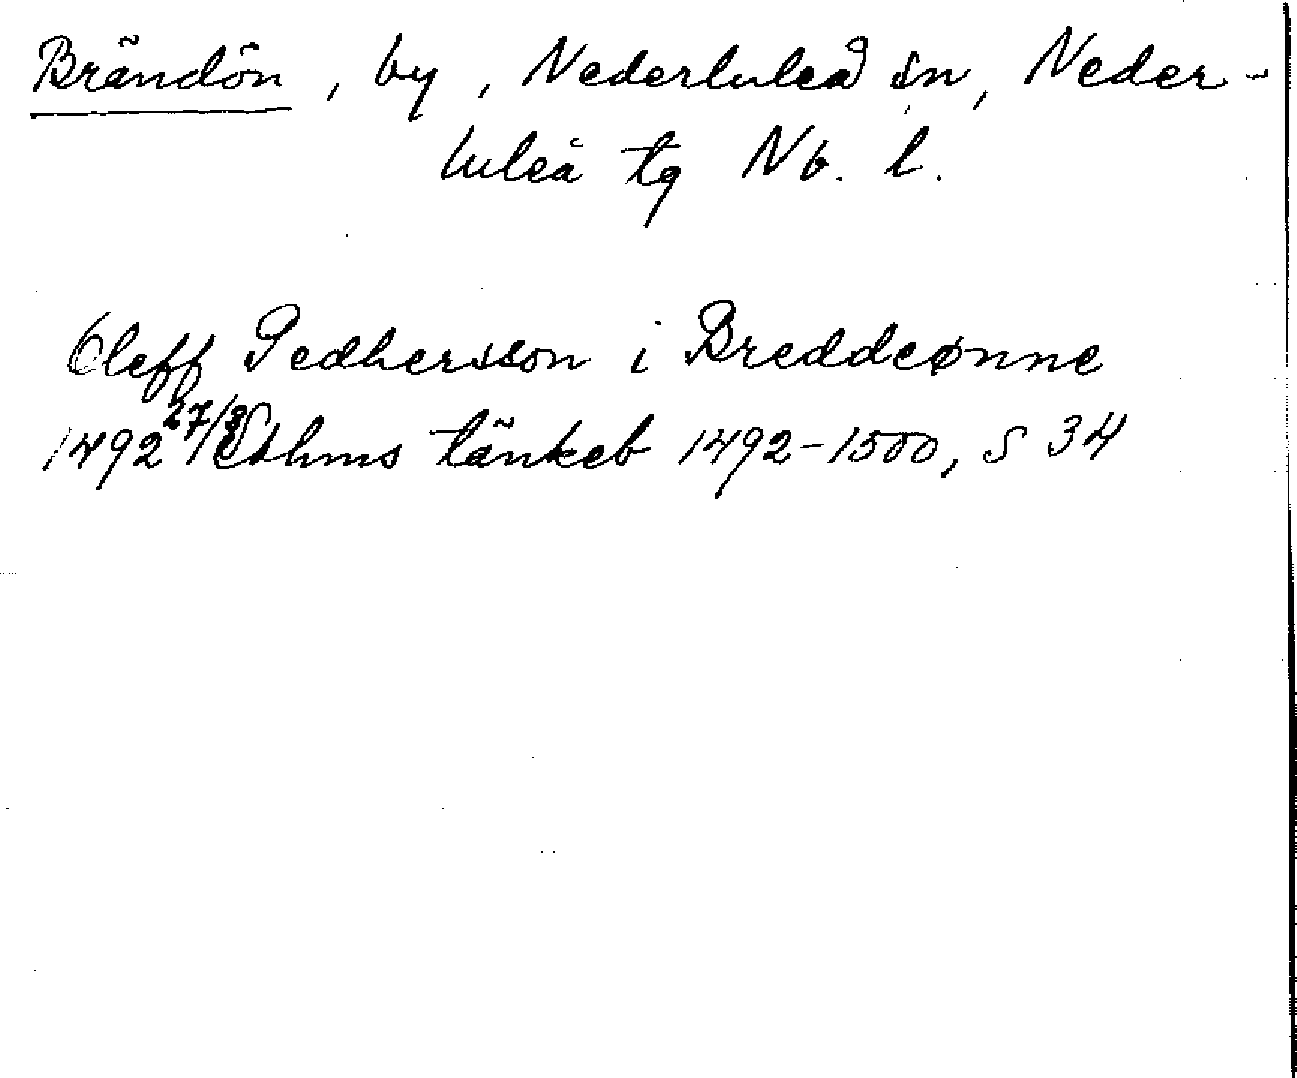 Brändön, by, Nederluleå sn, Neder-
luleå tg Nb. l.
Oleff Pedhersson i Breddeønne
1492 27/8 Sthms tänkeb 1492-1500, s 34